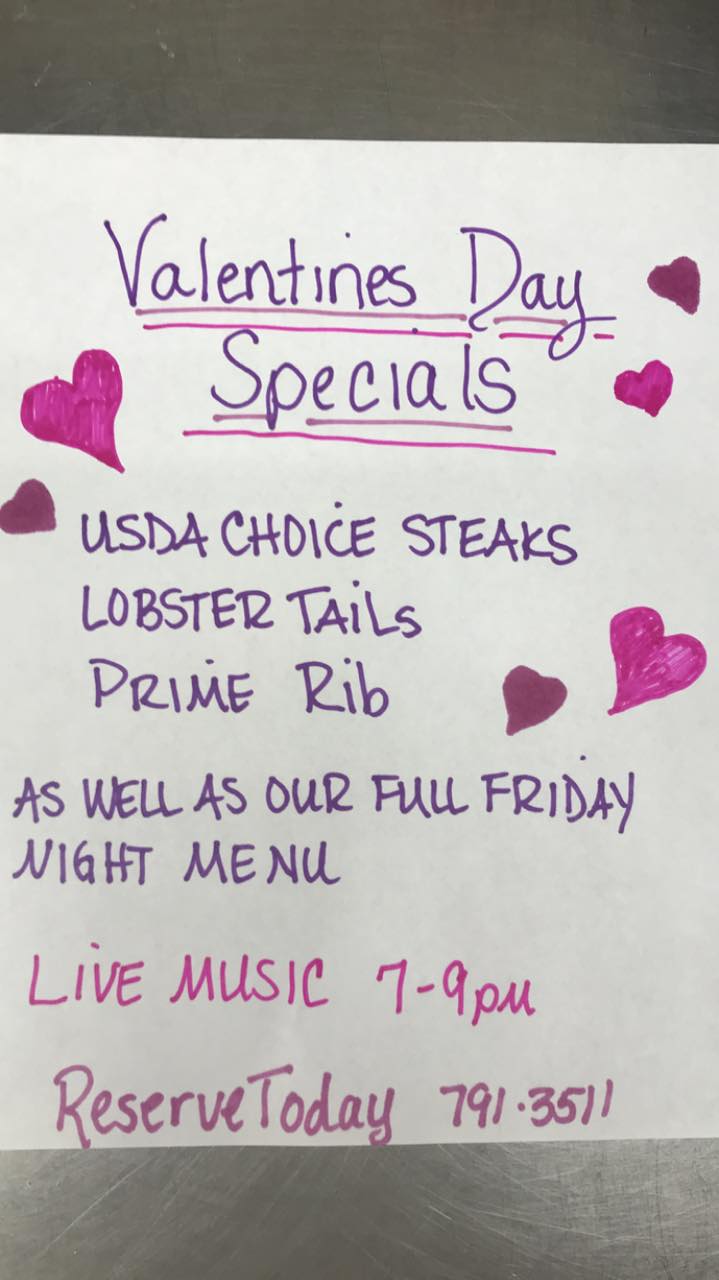 Valentines Day
Specials
USDA CHOICE STEAKS
LOBSTER TAiLS
PRIME Rib
AS WELL AS OUR FULL FRIDAY
NIGHT MENU
LIVE MUSIC 7-9pm
Reserve Today 791.3511